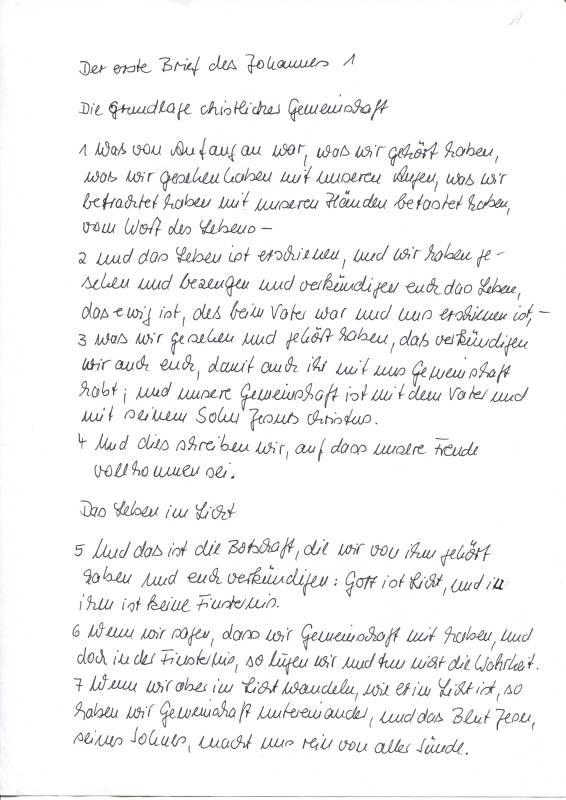 1
Der erste Brief des Johannes 1
Die Grundlage christlicher Gemeinschaft
1 Was von Anfang an war, was wir gehört haben,
was wir gesehen haben mit unseren Augen, was wir
betrachtet haben mit unseren Händen betastet haben,
vom Wort des Lebens –
2 und das Leben ist erschienen, und wir haben ge-
sehen und bezeugen und verkündigen euch das Leben,
das ewig ist, das beim Vater war und uns erschienen ist, –
3 was wir gesehen und gehört haben, das verkündigen
wir auch euch, damit auch ihr mit uns Gemeinschaft
habt; und unsere Gemeinschaft ist mit dem Vater und
mit seinem Sohn Jesus Christus.
4 Und dies schreiben wir, auf dass unsere Freude
vollkommen sei.
Das Leben im Licht
5 Und das ist die Botschaft, die wir von ihm gehört
haben und euch verkündigen: Gott ist Licht, und in
ihm ist keine Finsternis.
6 Wenn wir sagen, dass wir Gemeinschaft mit haben, und
doch in der Finsternis, so lügen wir und tun nicht die Wahrheit.
7 Wenn wir aber im Licht wandeln, wie er im Licht ist, so
haben wir Gemeinschaft untereinander, und das Blut Jesu,
seines Sohnes, macht uns rein von aller Sünde.